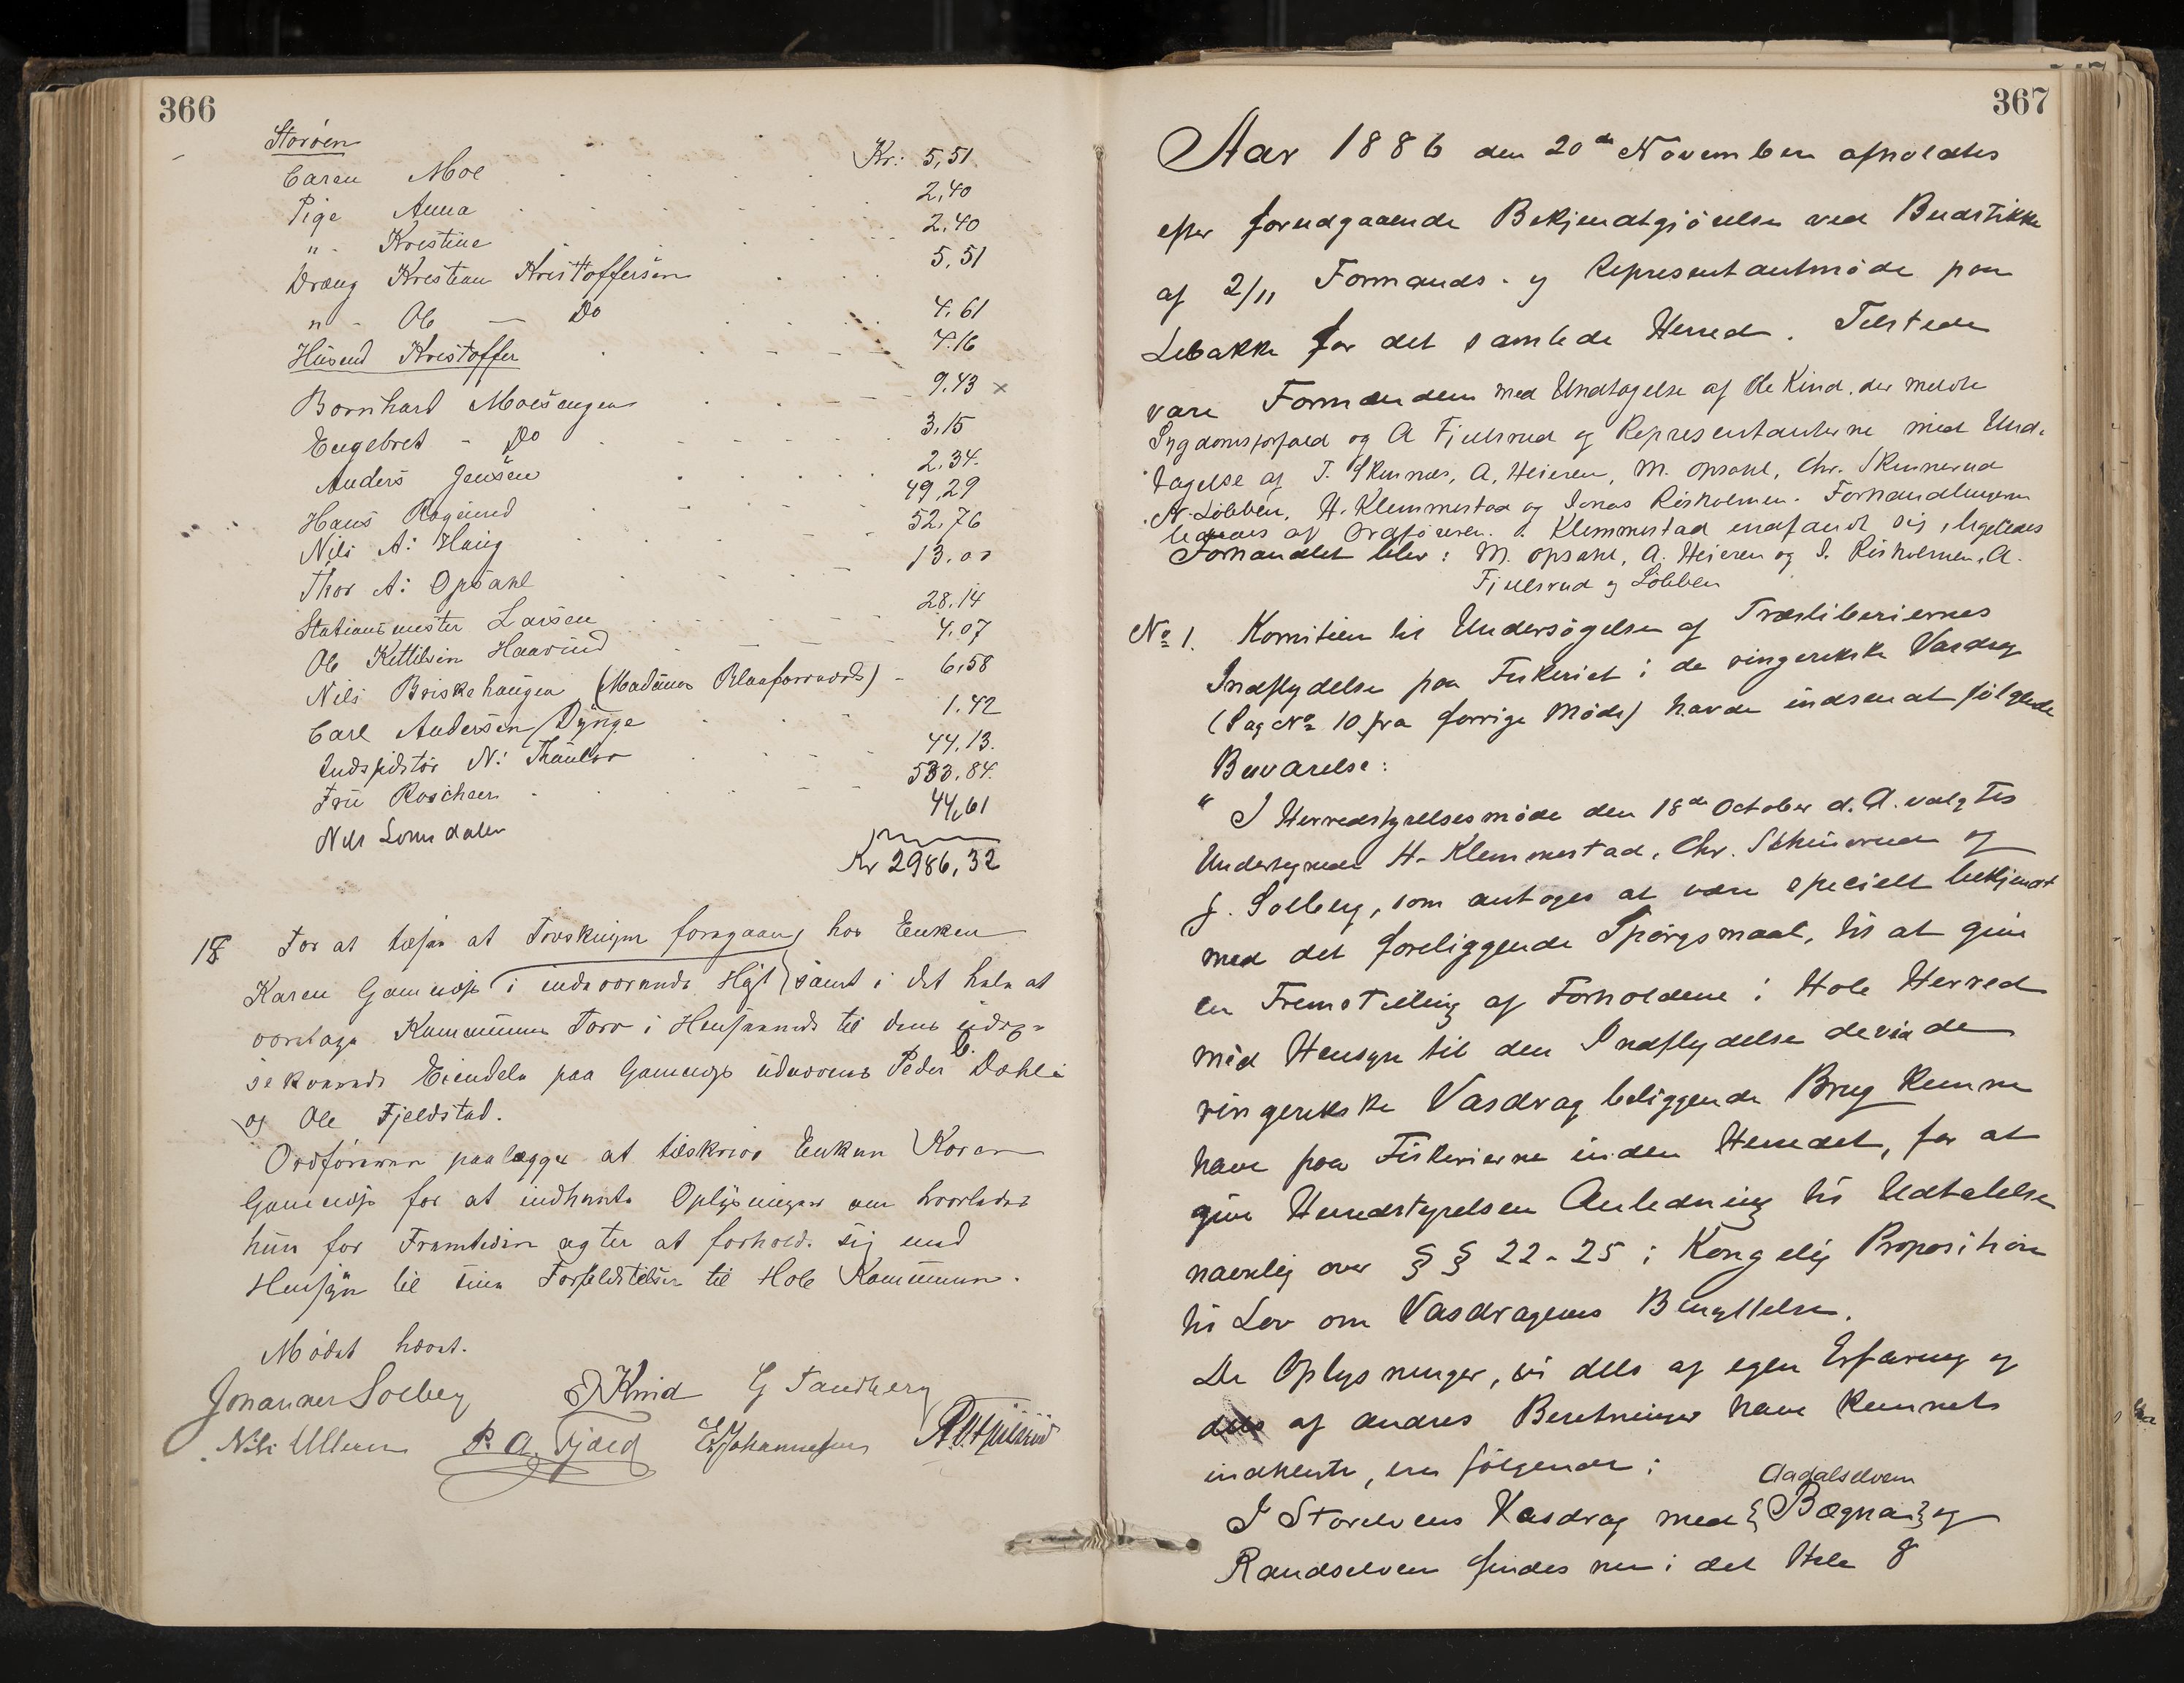 366
Storøen
Caren Moe Kr: 5,51
Pige Anna 2,40
"- Kristine 2,40
Dræng Kristian Kristoffersen 5,51
"- Ole — Do 4,61
Husmd Kristoffer 7.16
Bornhard Moesengen 9.43 x
Engebret - Do 3,15
Anders Jensen 2,34.
Hans Rogsund 49,29
Nils A: Haug 52,76
Thor A: Opsahl 13.00
Stationsmester Larsen 28.14
Ole Kittilsen Haarud 4.07
Nils Briskehaugen (Madames Blaafarveværk) 6,58
Carl Andersen Dynge 1.42
Indspektør N: Thaulov 44.13.
Frü Roscher 533.84.
Nils Lomsdalen 44,61
Kr 2986,32
18 For at tilse at Torvskuren foregaar hos Enken
Karen Gomnæs i indeværende Høst samt i det hele at
varetage Kommunens Tarv i Henseende til dens
Eiendele paa Gomnæs udnævnes Peder L. Dahl
og Ole Fjeldstad.
Ordføreren paalægges at tilskrive Enken Karen
Gomnæs for at indhente Oplysninger om hvorledes
hün for Fremtiden agter at forholde sig med
Hensyn til sine Forpligtelser til Hole Kommune.
Mødet hævet.
Johannes Solberg O Kind G Tandberg
Nils Ullern P. A. Fjeld E. Johannesen A. O. Fjeldsrud
367
Aar 1886 den 20de November afholdtes
efter forudgaaende Bekjendtgjörelse ved Budstikke
af 2/11 Formands- og Representantmöde paa
Lebakke for det samlede Herred. Tilstede
vare Formænden med Undtagelse af Ole Kind, der meldte
Sygdomsforfald og A Fjeldsrud og Representanterne med Und-
tagelse af T. Skumnæs, A. Heieren, M. Opsahl, Chr. Skinnerud
N. Löbben, H. Klemmestad og Jonas Risholmen. Forhandlingerne
lededes af Ordföreren. Klemmestad indfandt sig, ligeledes
Forhandlet blev: M. Opsahl, A. Heieren og J. Risholmen, A.
Fjeldsrud og Löbben
No 1. Komitéen til Undersögelse af Træsliberiernes
Indflydelse paa Fiskeriet i de ringerikske Vasdrag
(Sag No 10 fra forrige Möde) havde indsendt fölgende
Besvarelse:
" I Herredstyrelsesmöde den 18de October d. A. valgtes
Undertegnede H. Klemmestad, Chr. Skinnerud og
J. Solberg, som antoges at være specielt bekjendt
med det foreliggende Spörgsmaal, til at give
en Fremstilling af Forholdene i Hole Herred
med Hensyn til den Indflydelse de via de
ringerikske Vasdrag beliggende Brug kunne
have paa Fiskerierne inden Herredet, for at
give Herredstyrelsen Anledning til Udtalelse
navnlig over §§ 22-25 i Kongelig Proposition
til Lov om Vasdragenes Benyttelse.
De Oplysninger, vi dels af egen Erfaring og
dels af andres Beretninger have kunnet
indhente, ere fölgende:
Aadalselven
I Storelvens Vasdrag med {Bægna} og
Randselven findes nu i det Hele 8